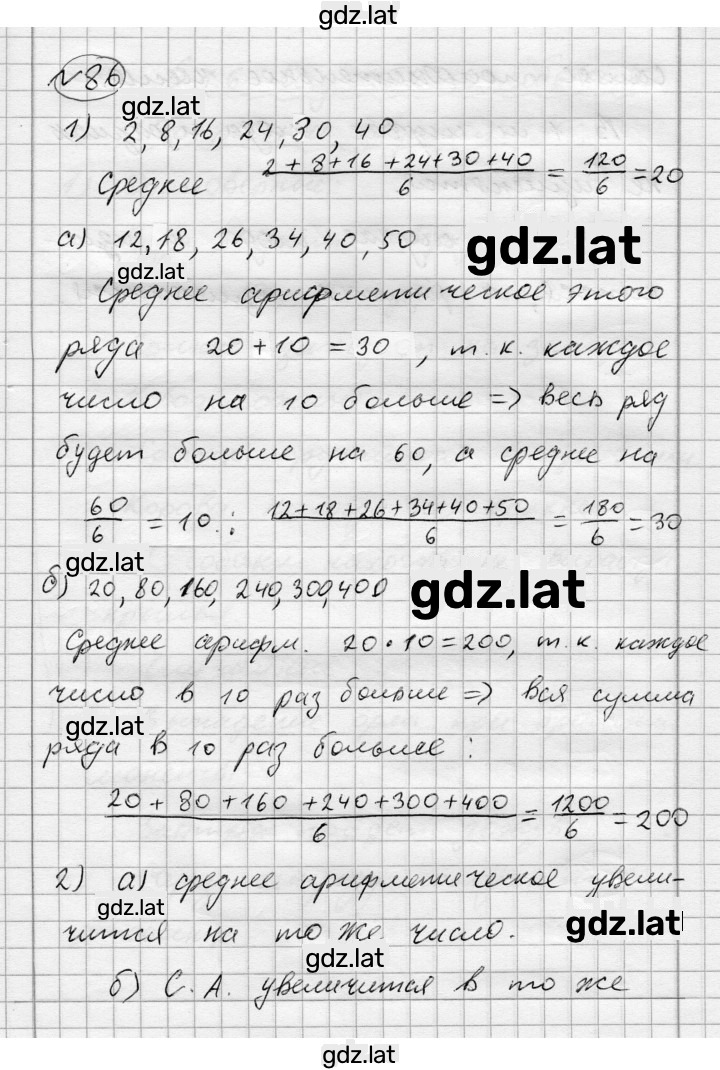 gdz.lat
№86
gdz.lat
1) 2, 8, 16, 24, 30, 40
Среднее (2+8+16+24+30+40)/6 = 120/6 = 20
а) 12, 18, 26, 34, 40, 50
gdz.lat
gdz.lat
Среднее арифметическое этого
ряда 20+10=30, т.к. каждое
число на 10 больше => весь ряд
будет больше на 60, а среднее на
60/6 = 10.; (12+18+26+34+40+50)/6 = 180/6 = 30
gdz.lat
б) 20, 80, 160, 240, 300, 400
gdz.lat
Среднее арифм. 20·10=200, т.к. каждое
число в 10 раз больше => вся сумма
gdz.lat
ряда в 10 раз больше:
(20+80+160+240+300+400)/6 = 1200/6 = 200
2) а) среднее арифметическое увели-
gdz.lat
чится на то же число.
gdz.lat
gdz.lat
б) С.А. увеличится в то же
gdz.lat